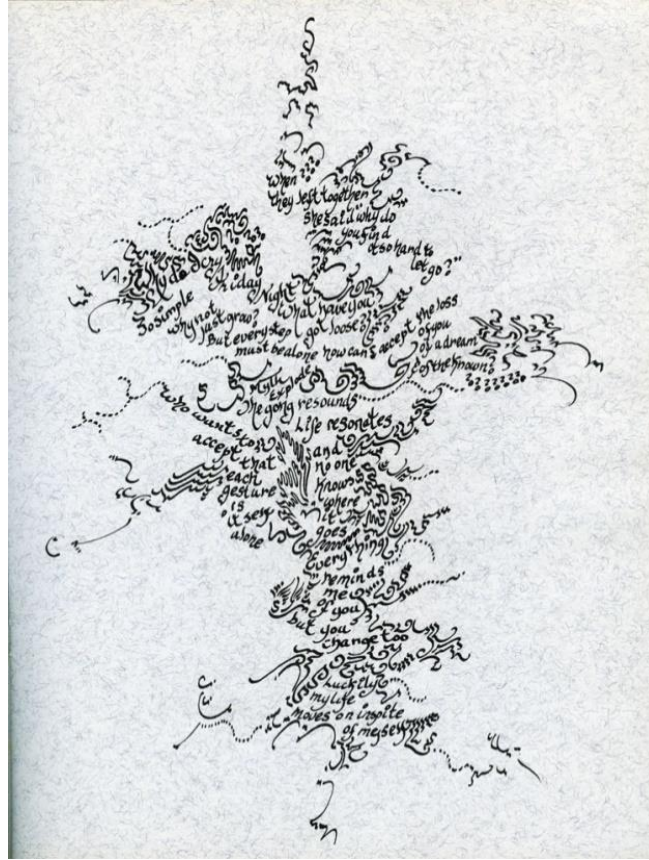 When
they left together
she said "why do
you find
it so hard to
let go?"
Why do I cry
Friday
Night
So simple
why not
just grow?
What have you
But every step I got loose?
must be alone how can I accept the loss
of you
of a dream
& of the known?
Myth
Explode
The gong resounds
Life resonates
who wants to
accept that
each
gesture
is
itself
alone
and
no one
knows
where
it
goes
Everything
reminds
me
of you
but you
change too
Luckily
my life
moves on inspite
of myself